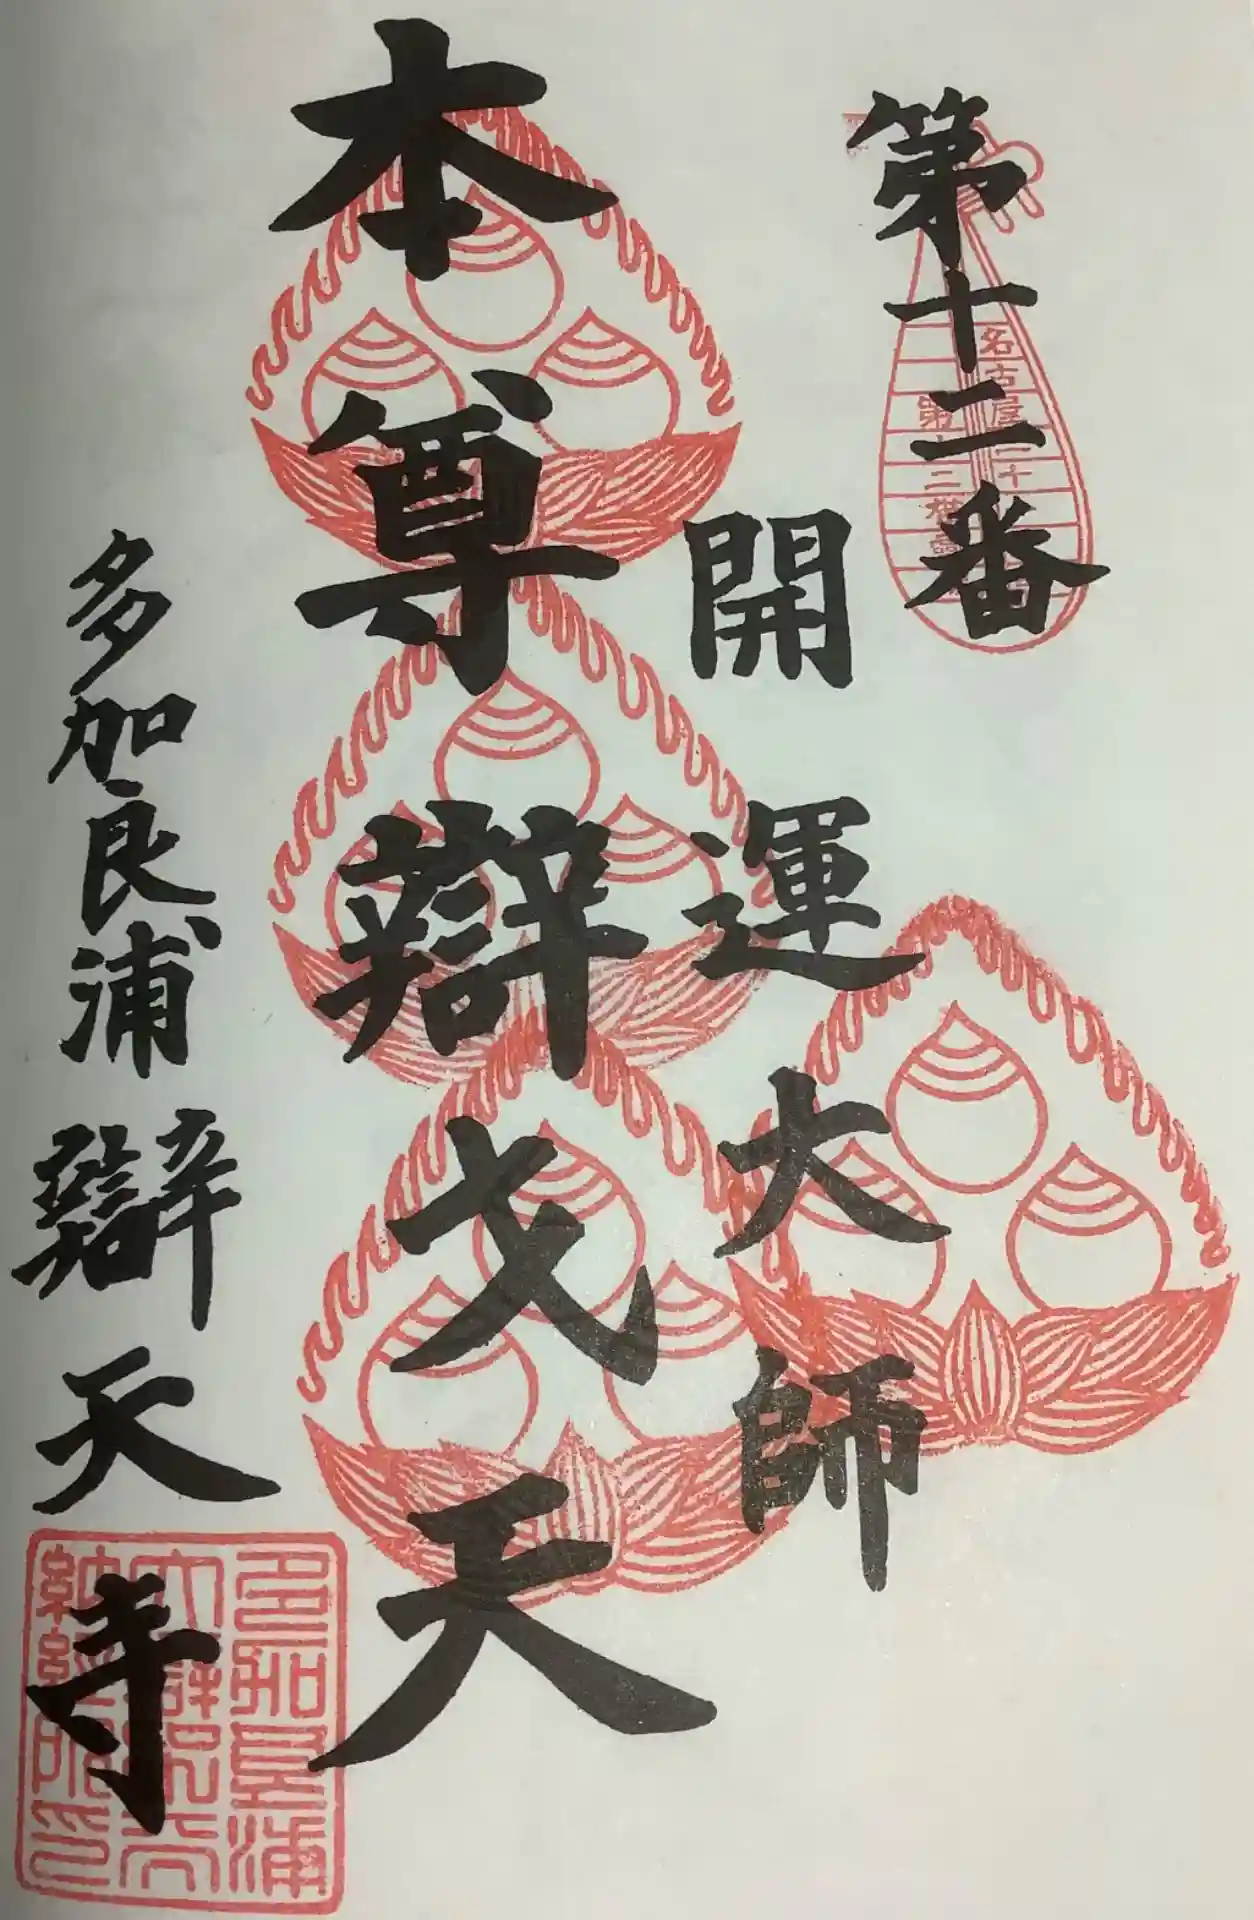 第十二番
開運大師
本尊辯才天
多加良浦辯天寺
名古屋二十
第十二番